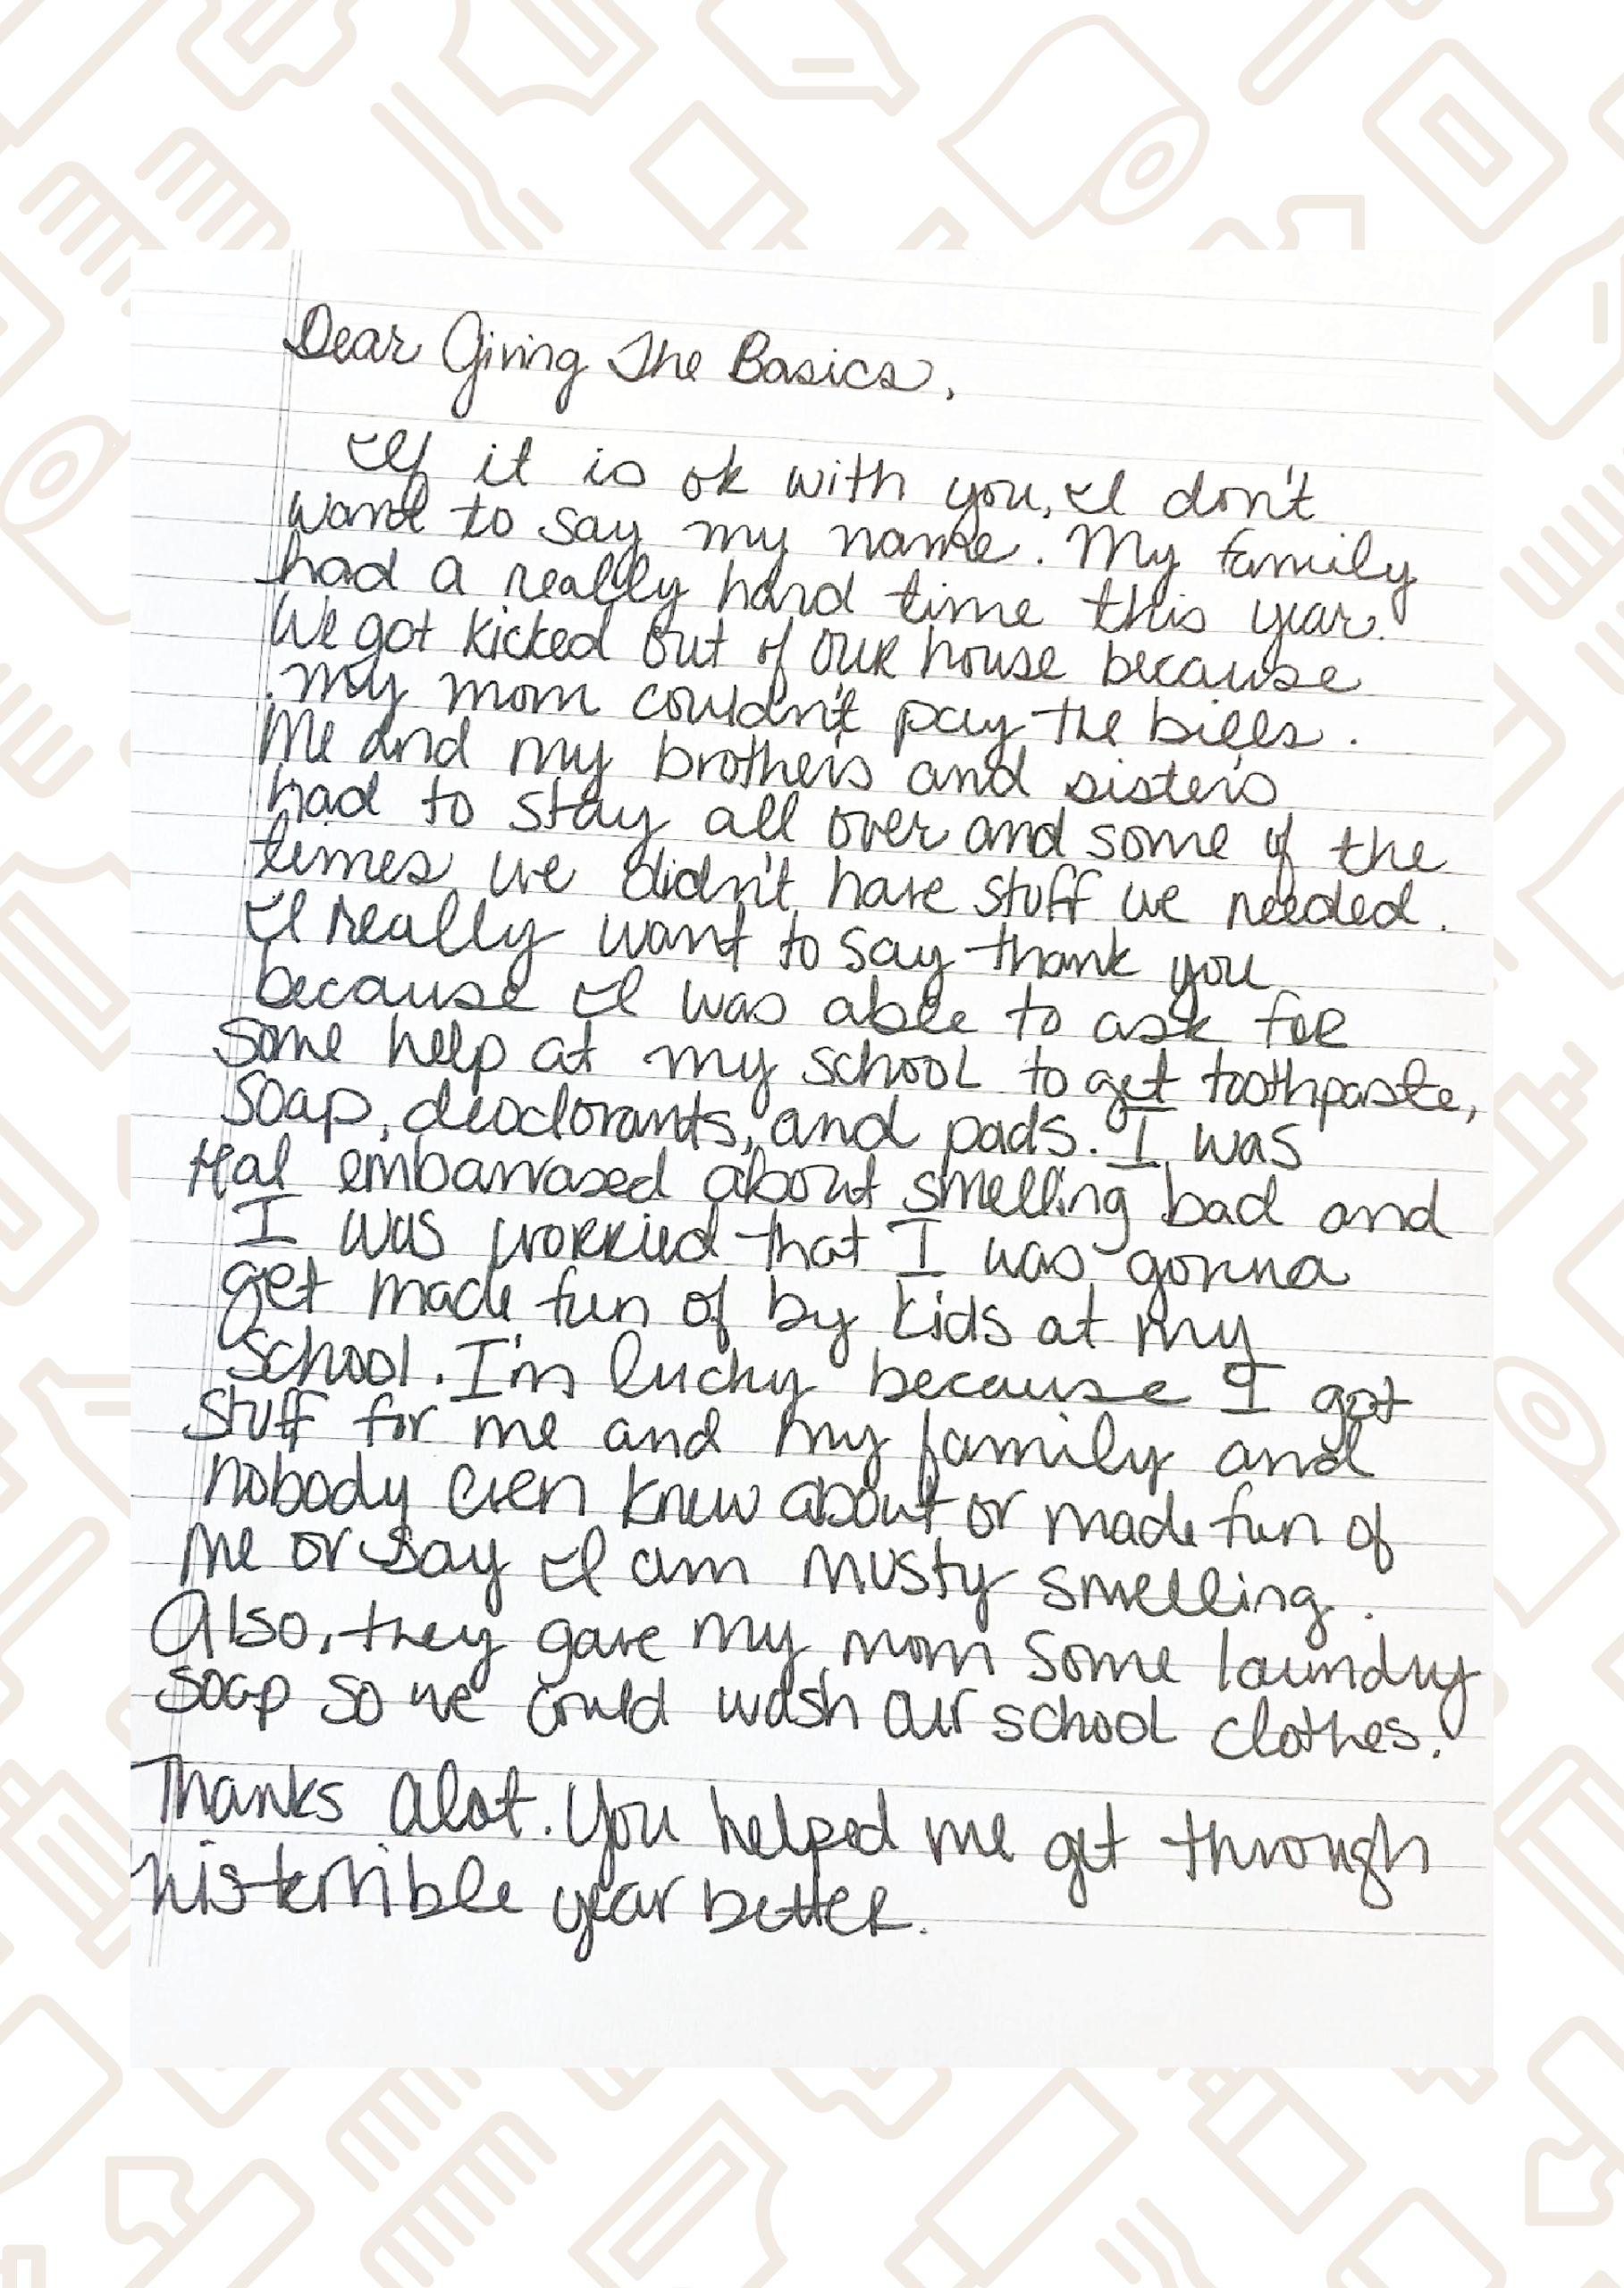 Dear Giving The Basics,
If it is ok with you, I don't
want to say my name. My family
had a really hard time this year.
We got kicked out of our house because
my mom couldn't pay the bills.
Me and my brothers and sisters
had to stay all over and some of the
times we didn't have stuff we needed.
I really want to say thank you
because I was able to ask for
some help at my school to get toothpaste,
soap, deodorants, and pads. I was
real embarrased about smelling bad and
I was worried that I was gonna
get made fun of by kids at my
school. I'm lucky because I got
stuff for me and my family and
nobody even knew about or made fun of
me or say I am musty smelling.
Also, they gave my mom some laundry
soap so we could wash our school clothes.
Thanks alot. You helped me get through
this terrible year better.